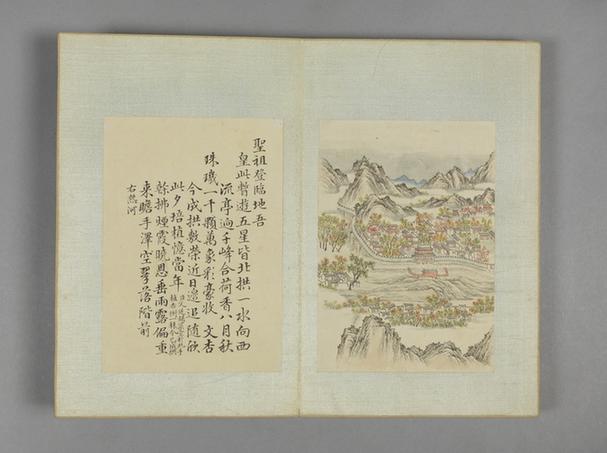 聖祖登臨地吾
皇此暫遊五星皆北拱一水向西
流亭過千峰合荷香八月秋
珠璣一千顆萬象彩豪收文杏
今成拱敷榮近日邊追隨欣
此夕培植憶當年
幹拂煙霞曉恩垂雨露偏重
來瞻手澤空翠落階前
右熱河